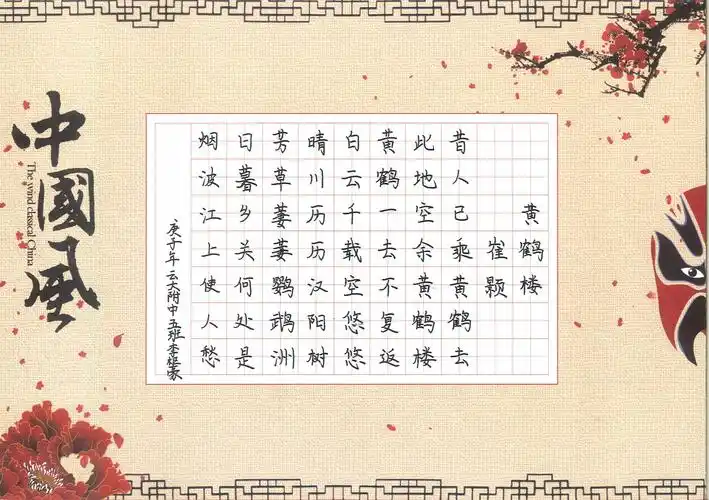 黄鹤楼
崔颢
昔人已乘黄鹤去
此地空余黄鹤楼
黄鹤一去不复返
白云千载空悠悠
晴川历历汉阳树
芳草萋萋鹦鹉洲
日暮乡关何处是
烟波江上使人愁
庚子年云大附中五班李
中國風
The wind classical China